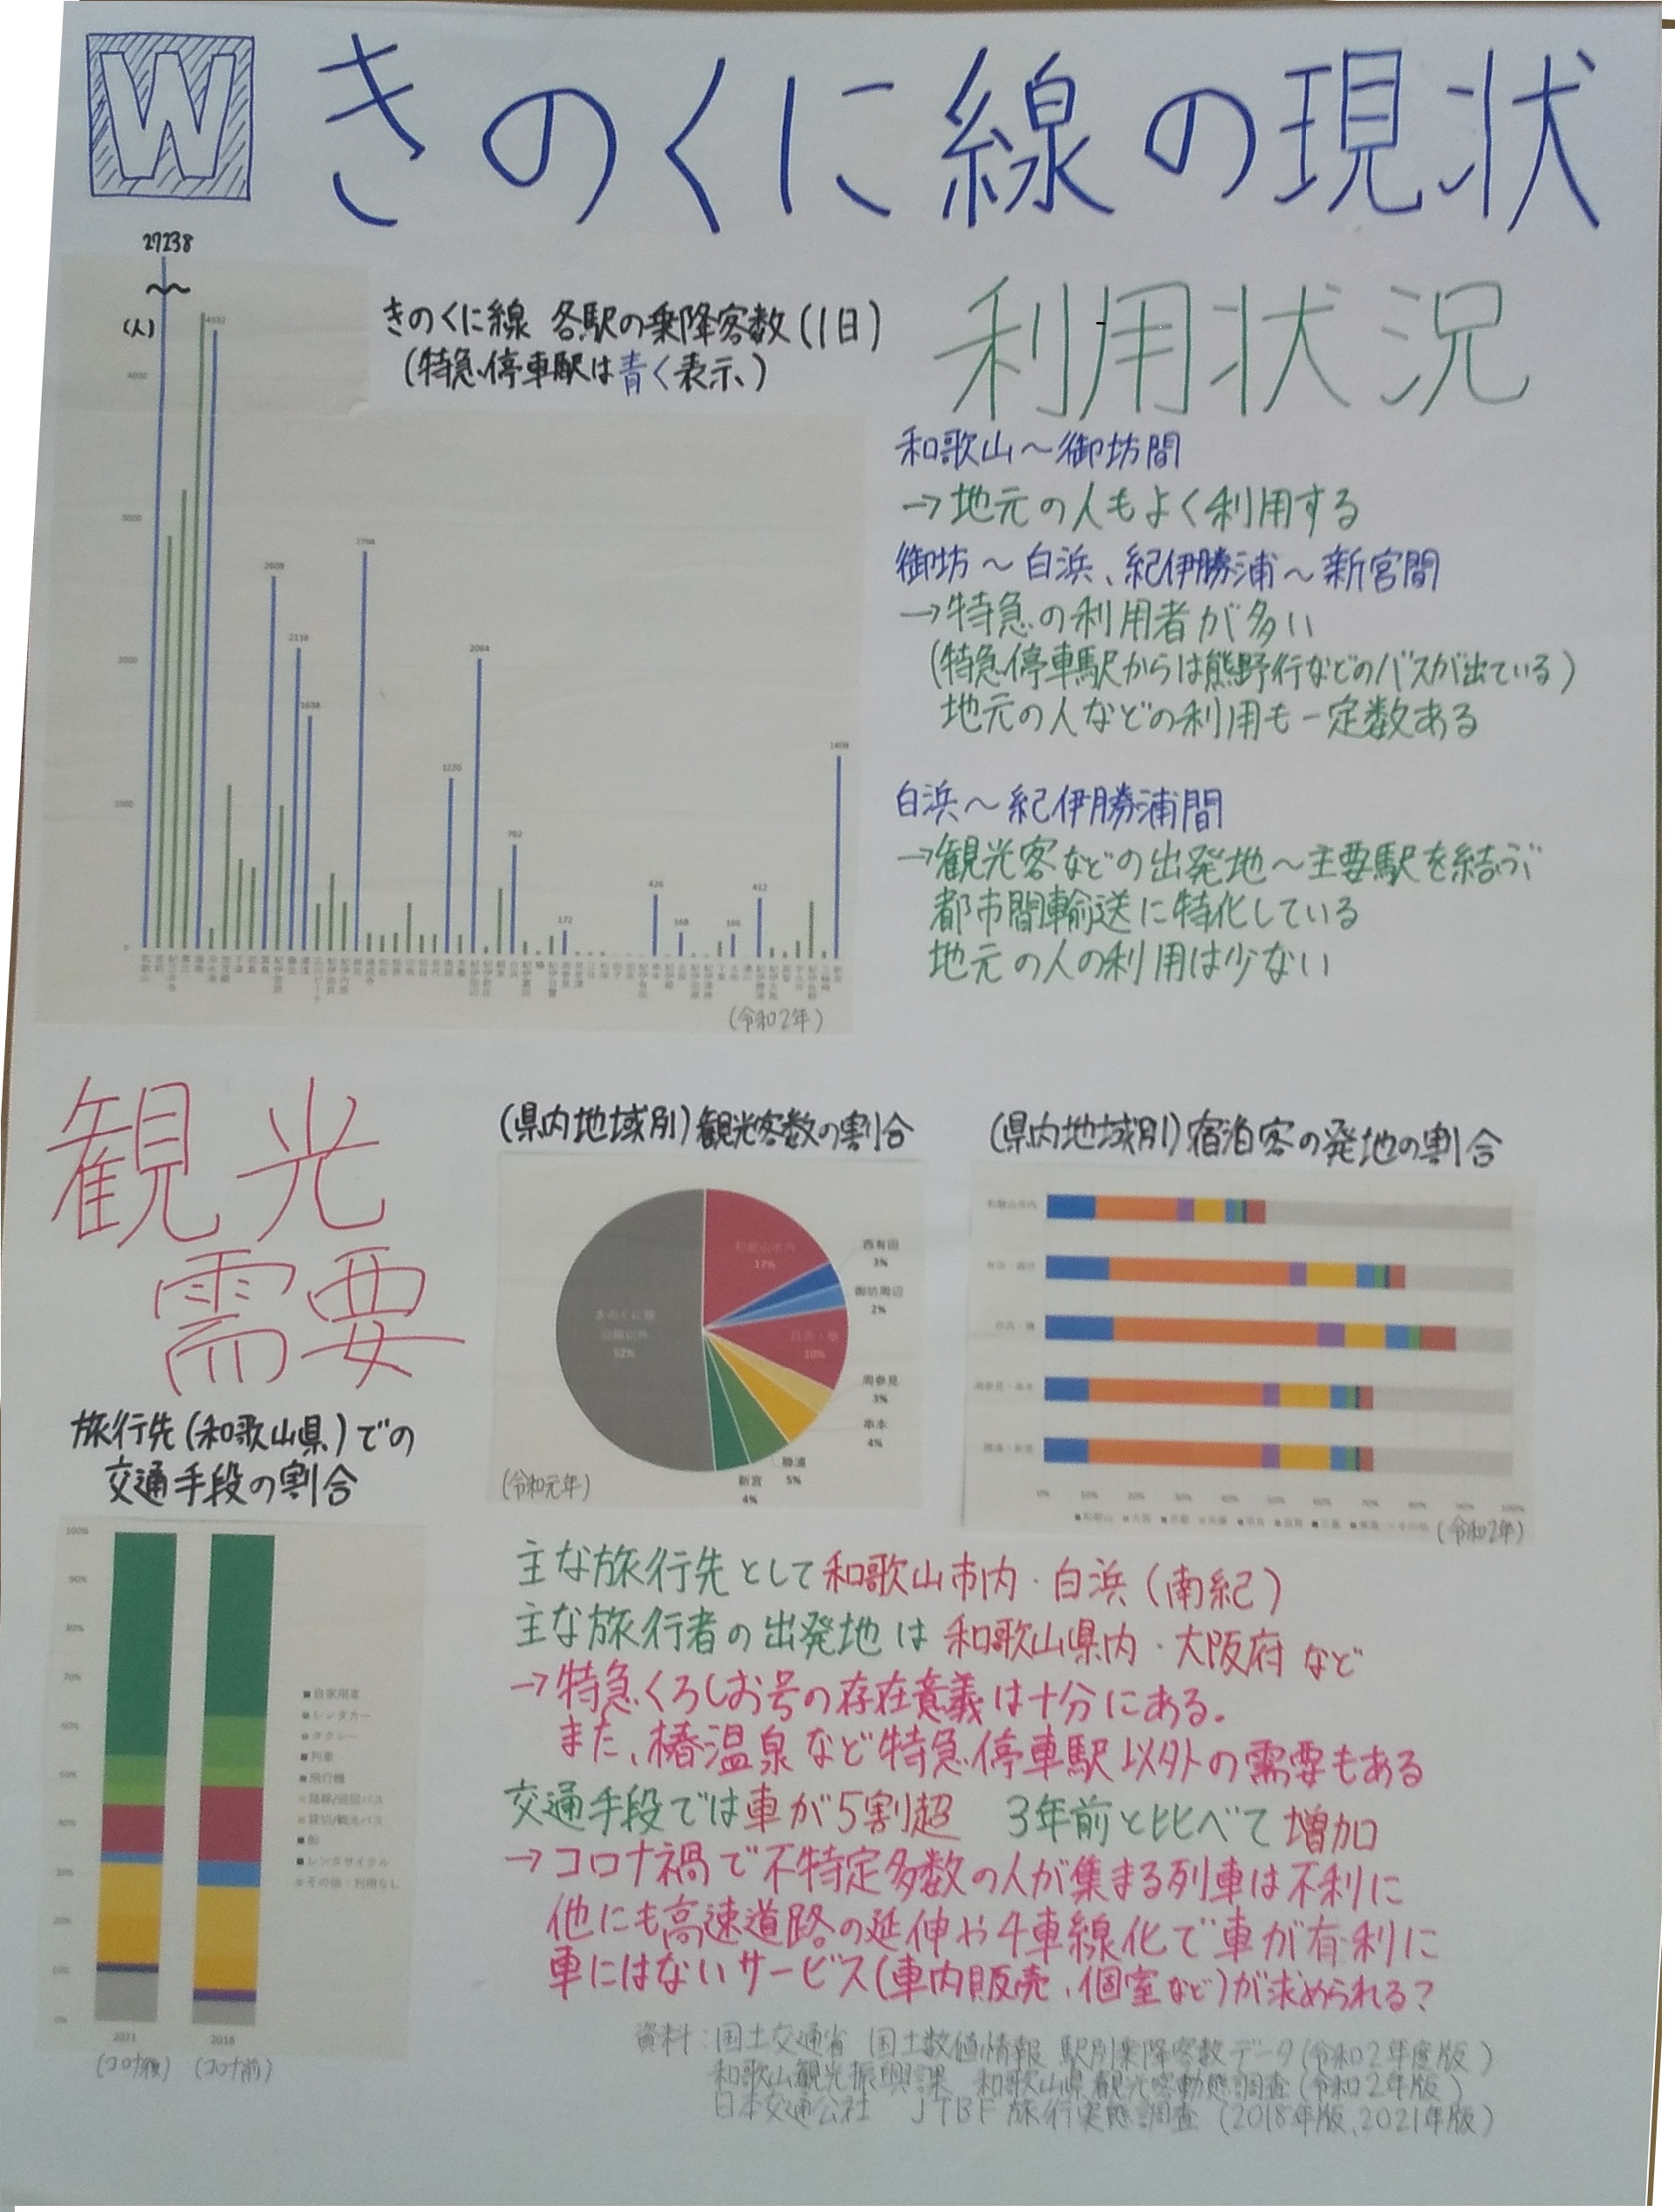 W
きのくに線の現状
27238
(人)
きのくに線 各駅の乗降客数(1日)
(特急停車駅は青く表示)
4000
3000
2000
1000
0
4332
2609
2116
1638
2794
1220
2064
762
172
426
168
166
412
1408
(令和2年)
利用状況
和歌山〜御坊間
→地元の人もよく利用する
御坊〜白浜、紀伊勝浦〜新宮間
→特急の利用者が多い
(特急停車駅からは熊野行などのバスが出ている)
地元の人などの利用も一定数ある
白浜〜紀伊勝浦間
→観光客などの出発地〜主要駅を結ぶ
都市間輸送に特化している
地元の人の利用は少ない
観光
需要
(県内地域別)観光客数の割合
和歌山市内
17%
西有田
3%
御坊周辺
2%
白浜・椿
10%
周参見
3%
串本
4%
勝浦
5%
新宮
4%
きのくに線
沿線以外
52%
(令和元年)
(県内地域別)宿泊客の発地の割合
和歌山市内
有田・御坊
白浜・椿
周参見・串本
勝浦・新宮
0% 10% 20% 30% 40% 50% 60% 70% 80% 90% 100%
(令和2年)
旅行先(和歌山県)での
交通手段の割合
100%
90%
80%
70%
60%
50%
40%
30%
20%
10%
0%
自家用車
レンタカー
タクシー
列車
飛行機
路線/巡回バス
貸切/観光バス
船
レンタサイクル
その他・利用なし
2021 2018
(コロナ後) (コロナ前)
主な旅行先として和歌山市内・白浜(南紀)
主な旅行者の出発地は和歌山県内・大阪府など
→特急くろしお号の存在意義は十分にある。
また、椿温泉など特急停車駅以外の需要もある
交通手段では車が5割超 3年前と比べて増加
→コロナ禍で不特定多数の人が集まる列車は不利に
他にも高速道路の延伸や4車線化で車が有利に
車にはないサービス(車内販売、個室など)が求められる?
資料:国土交通省 国土数値情報 駅別乗降客数データ(令和2年度版)
和歌山観光振興課 和歌山県観光客動態調査(令和2年版)
日本交通公社 JTBF旅行実態調査(2018年版、2021年版)